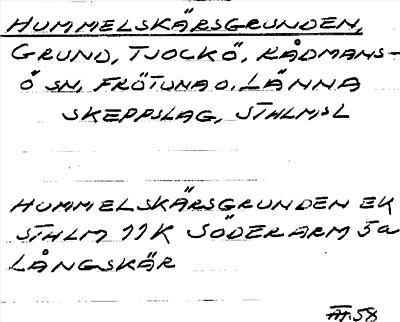 HUMMELSKÄRSGRUNDEN,
GRUND, TJOCKÖ, RÅDMANS-
Ö SN, FRÖTUNA O. LÄNNA
SKEPPSLAG, STHLM:S L
HUMMELSKÄRSGRUNDEN EK
STHLM 11K SÖDERARM 5a
LÅNGSKÄR
58